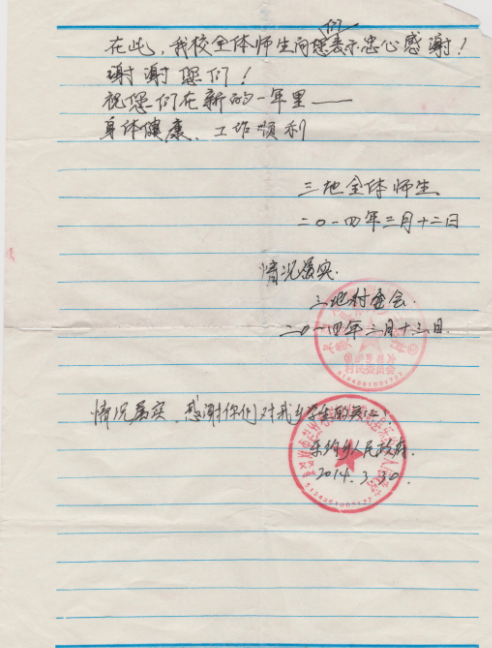 在此，我校全体师生向您们表示忠心感谢！
谢谢您们！
祝您们在新的一年里——
身体健康、工作顺利
三地全体师生
二〇一四年三月十二日
情况属实.
三地村委会.
二〇一四年三月十三日.
村民委员会
情况属实，感谢你们对我乡学生的关心！
乐约乡人民政府.
2014.3.30.